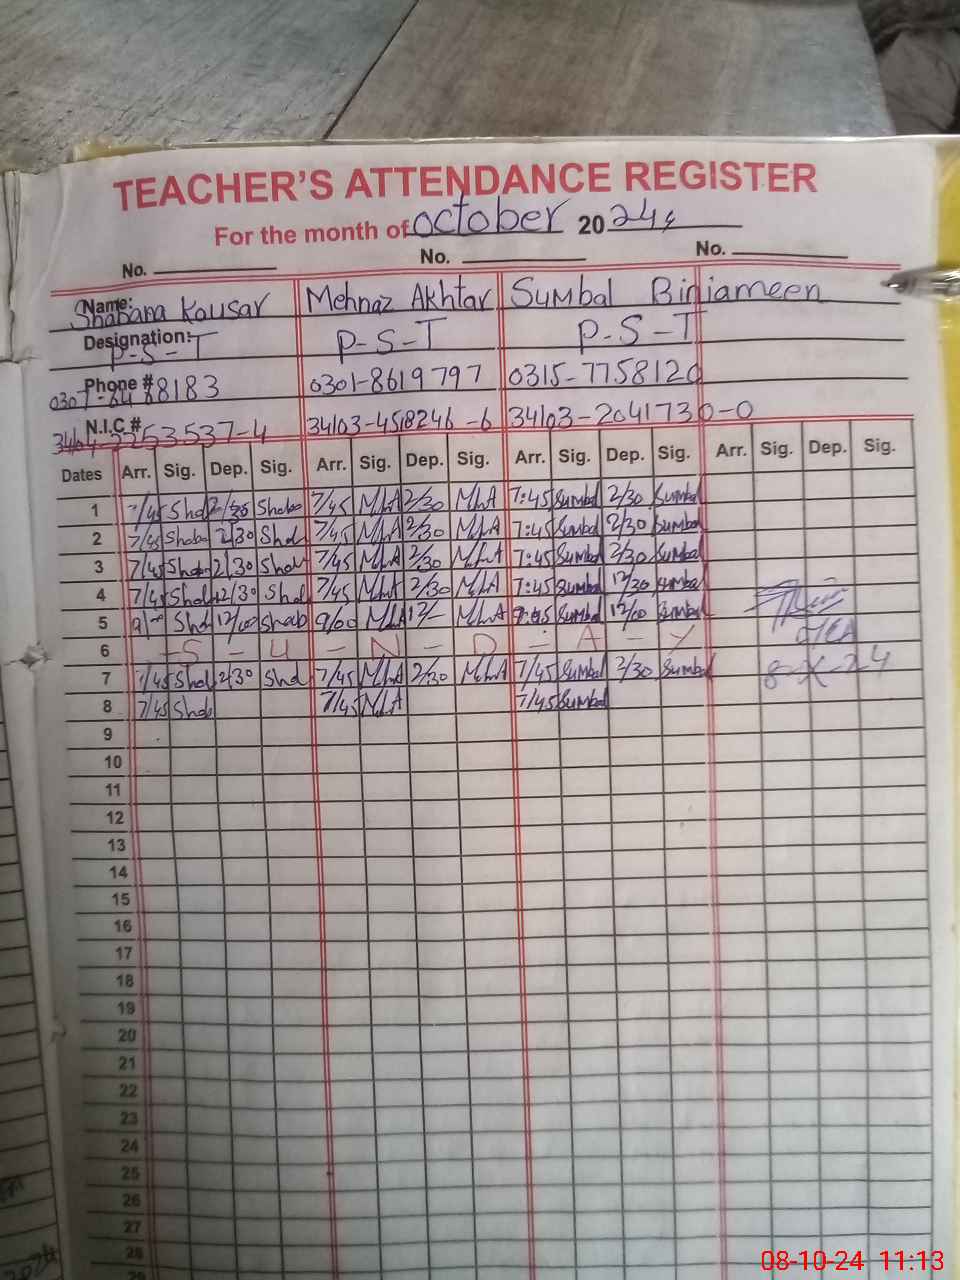 TEACHER'S ATTENDANCE REGISTER
For the month of October 2024
No. No. No.
Name: Shabana Kousar Mehnaz Akhtar Sumbal Binjameen
Designation: P-S-T P-S-T P-S-T
Phone # 8183 0301-8619797 0315-7758120
N.I.C # 3253537-4 34103-4518246-6 34103-2041730-0
Dates Arr. Sig. Dep. Sig. Arr. Sig. Dep. Sig. Arr. Sig. Dep. Sig. Arr. Sig. Dep. Sig.
1 7/45 Shab 2/30 Shaba 7/45 MLA 2/30 MLA 7:45 Sumbal 2/30 Sumbal
2 7/45 Shaba 2/30 Shd 7/45 MLA 2/30 MLA 7:45 Sumbal 2/30 Sumbal
3 7/45 Shab 2/30 Shab 7/45 MLA 2/30 MLA 7:45 Sumbal 2/30 Sumbal
4 7/45 Shab 12/30 Shd 7/45 MLA 2/30 MLA 7:45 Sumbal 12/30 Sumbal
5 9/- Shd 12/00 Shab 9/00 MLA 12/- MLA Sumbal 12/00 Sumbal
6 - S - U - N - D - A - Y
7 7/45 Shd 2/30 Shd 7/45 MLA 2/30 MLA 7/45 Sumbal 2/30 Sumbal 8-X-24
8 7/45 Shab 7/45 MLA 7/45 Sumbal
9
10
11
12
13
14
15
16
17
18
19
20
21
22
23
24
25
26
27
28
29
08-10-24 11:13